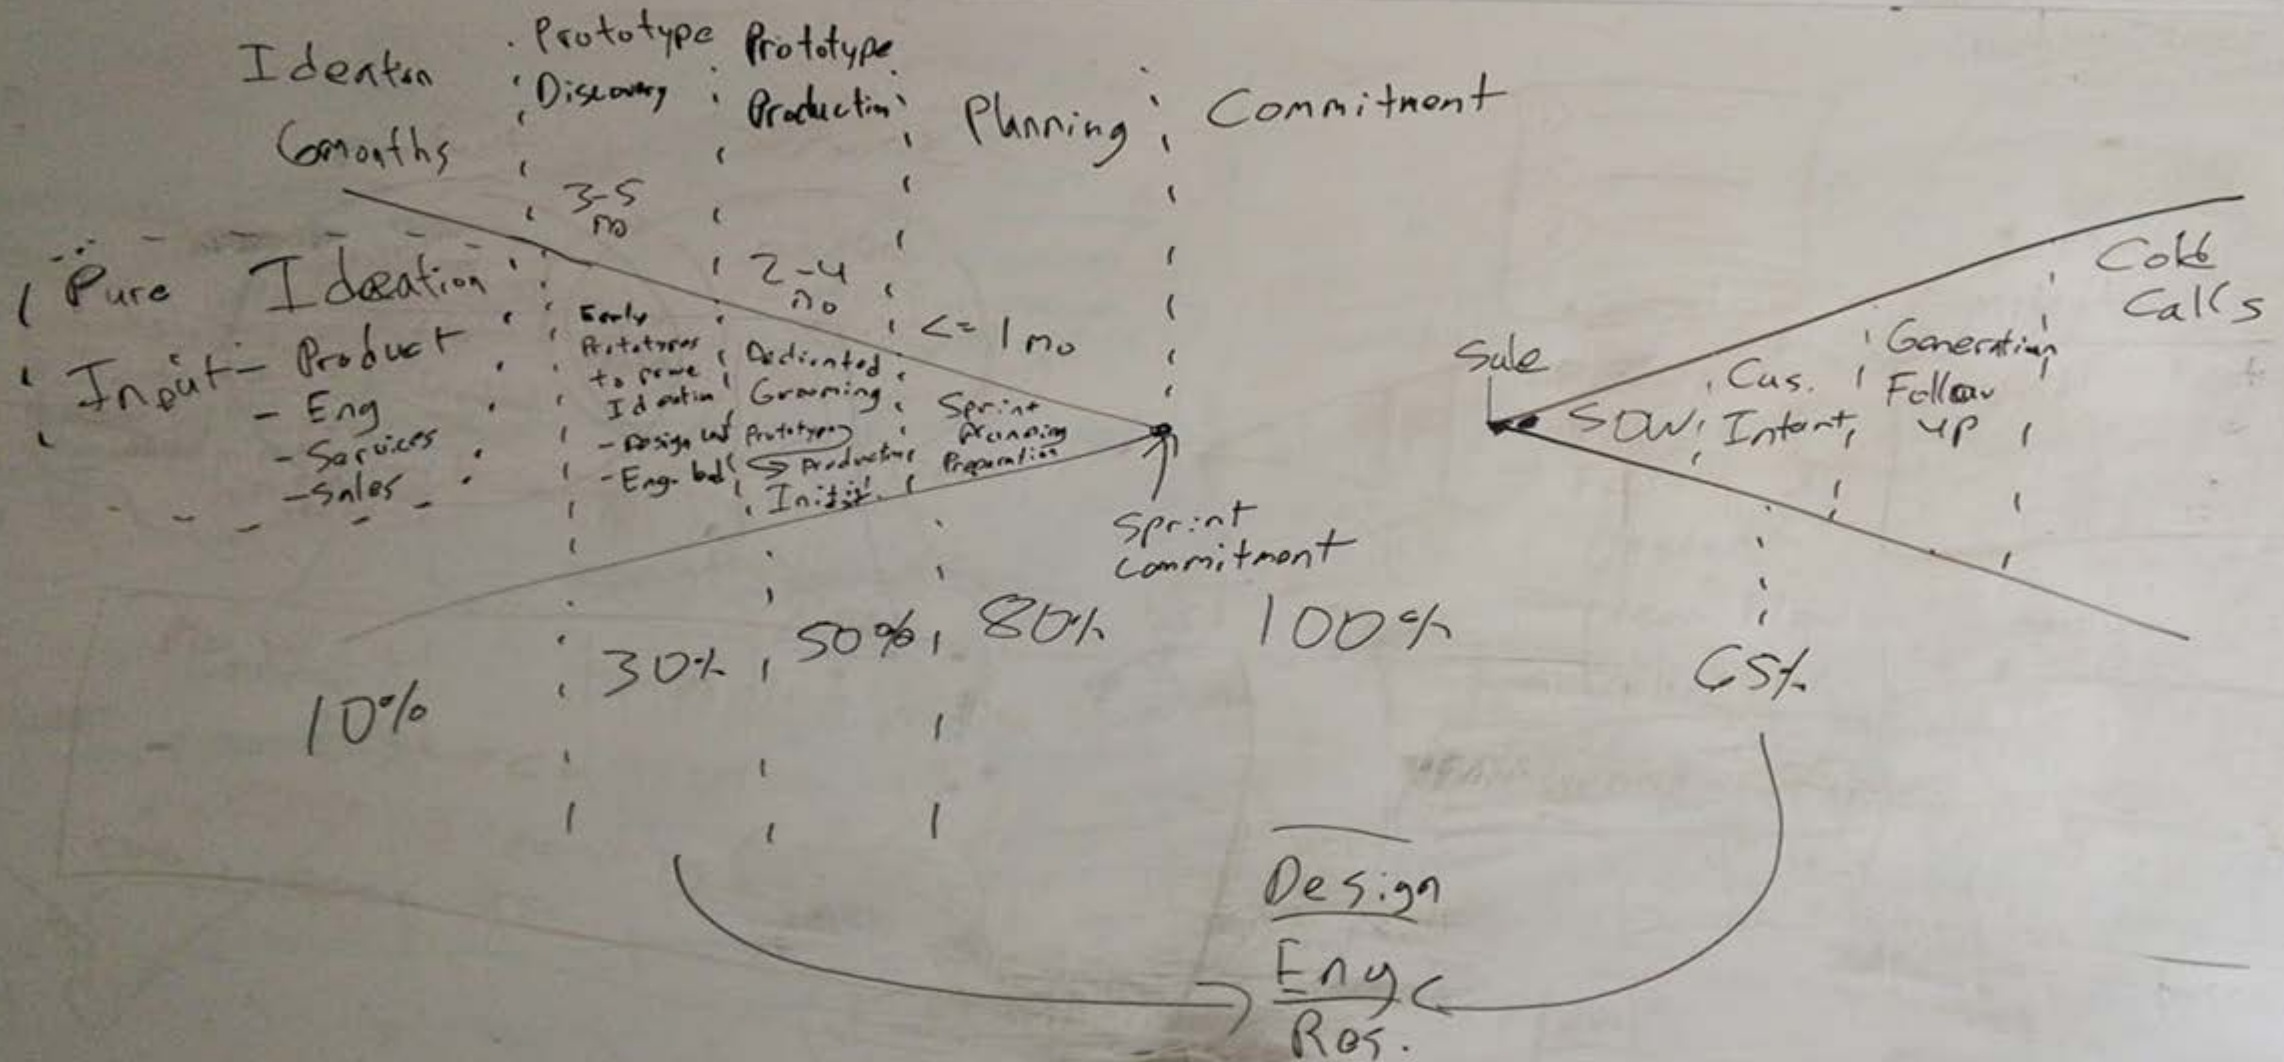 Ideaton
6months
Prototype
Discovery
Prototype
Production
Planning
Commitment
3-5
mo
2-4
mo
<= 1 mo
Pure Ideation
Input - Product
- Eng
- Services
- Sales
Early
Prototypes
to prove
Ideation
- Design
- Eng.
Dedicated
Grooming
Prototype
Production
Initial
Sprint
Planning
Preparation
Sprint
Commitment
Sale
SOW
Cus.
Intent
Generation
Follow
up
Cold
Calls
10%
30%
50%
80%
100%
65%
Design
Eng
Res.